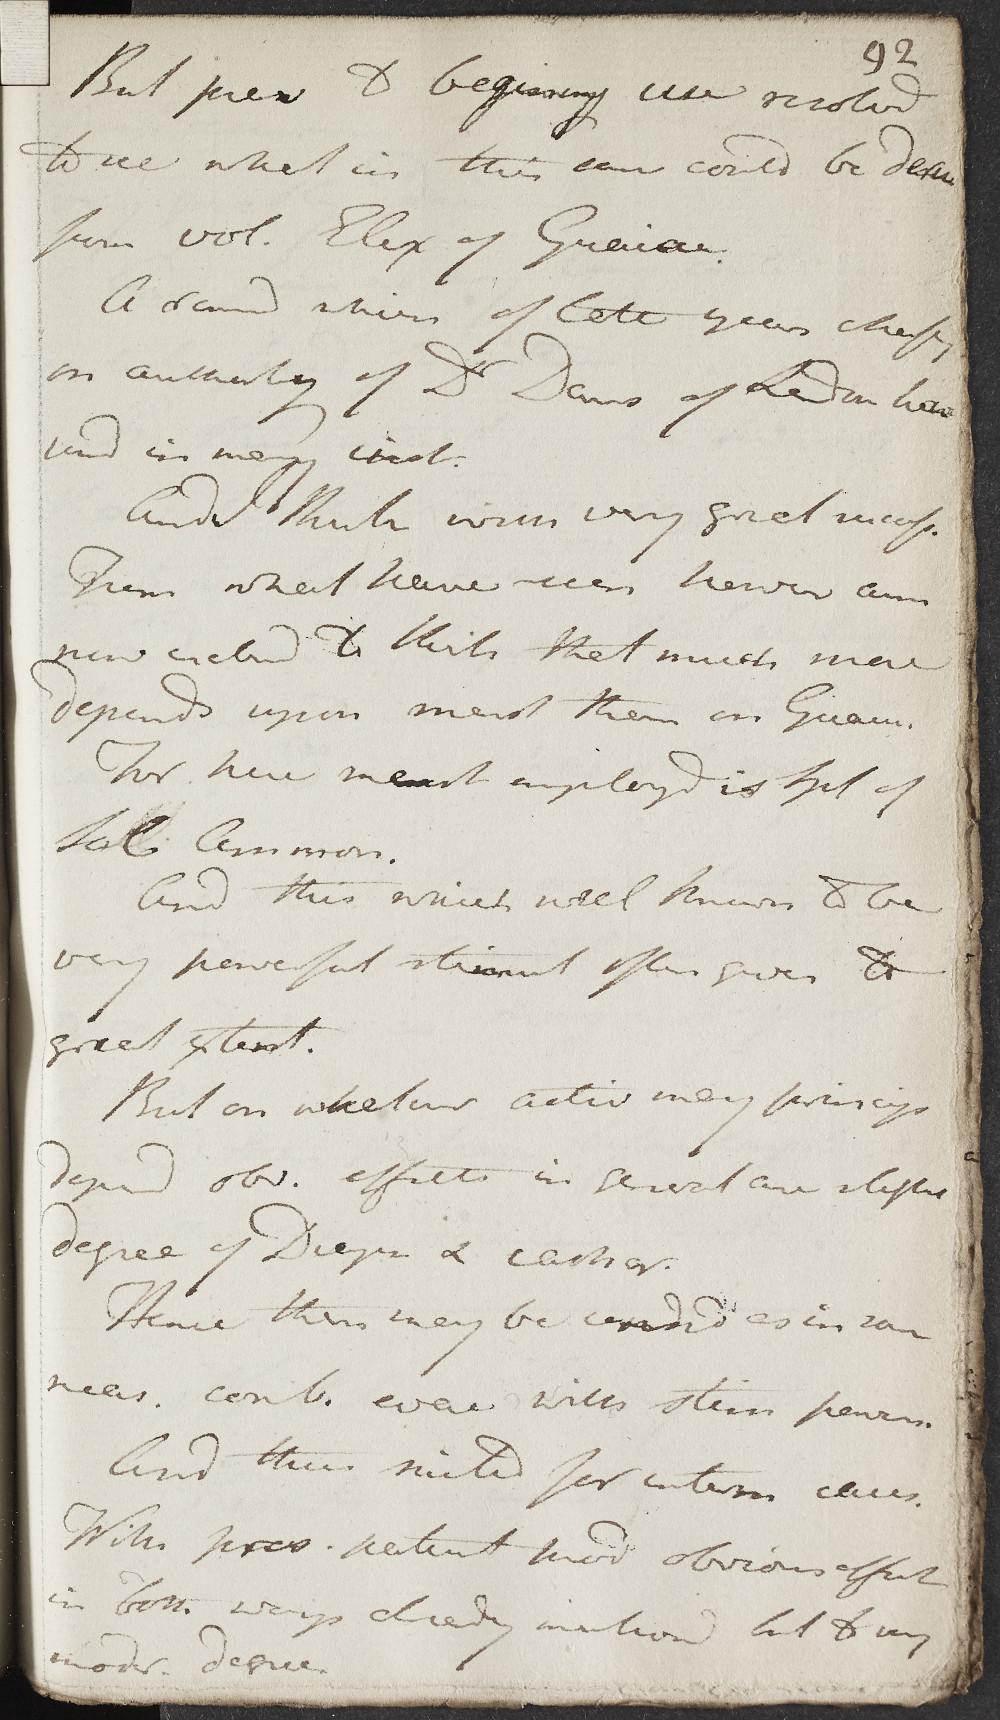 92
But prev to beginning use resolvd
to see what in this case could be deriv
from vol. Elix of Guaiac.
A remd which of late years chiefly
on authority of Dr Daws of London have
usd in many inst.
And I think with very great success.
From what have seen however am
now inclind to think that much more
depends upon menst than on Guaiac.
For here menst employd is spt of
Sal Ammon.
And this which well known to be
very powerful stimul often given to
great extent.
But on whatever activ may principy
depend obv. effects in general are slight
degree of Diaph & cathar.
Hence then may be considd as in some
meas. comb. evac with stim powers.
And thus suited for interm cases.
With pres. patient prod obvious effect
in both ways already mentiond but to very
moder. degree.